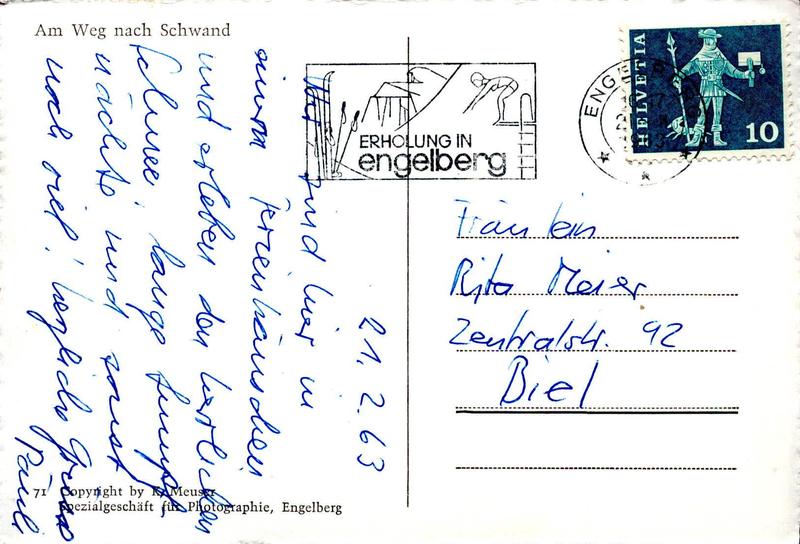 Am Weg nach Schwand
21. 2. 63
Wir sind hier in
einem Ferienhäuschen
und erleben den herrlichen
Schnee, lange
nächte und sonst
noch viel! herzliche Grüsse
Pauli
71 Copyright by K. Meuser
Spezialgeschäft für Photographie, Engelberg
ERHOLUNG IN
engelberg
ENGELBERG
HELVETIA
10
Fräulein
Rita Meier
Zentralstr. 92
Biel